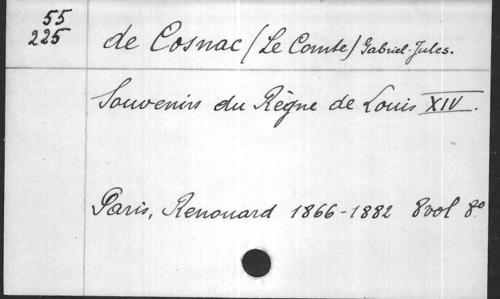 55
225
de Cosnac (Le Comte) Gabriel-Jules.
Souvenirs du Règne de Louis XIV.
Paris, Renouard 1866-1882 8 vol 8º